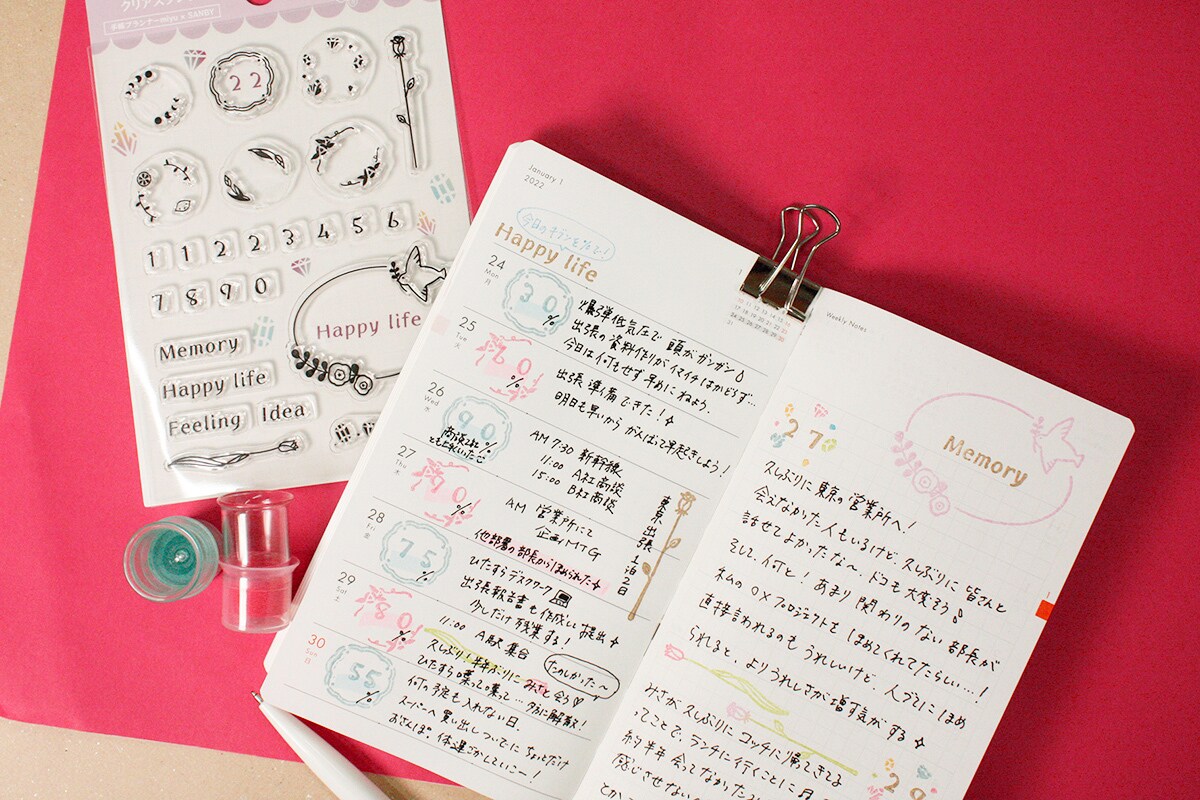 クリアスタンプ
手帳プランナーmiyu × SANBY
22
1 1 2 2 3 4 5 6
7 8 9 0
Happy life
Memory
Happy life
Feeling Idea
January 1
2022
今日のキゲンを%で!
Happy life
24
Mon
月
30%
爆弾低気圧で 頭がガンガン
出張の資料作りがイマイチはかどらず…
今日は何もせず 早めに ねよう.
25
Tue
火
60%
出張 準備できた!
明日も早いから がんばって早起きしよう!
26
Wed
水
90%
商談2社
とも上手くいったご
AM 7:30 新幹線
11:00 A社商談
15:00 B社商談
東京出張1泊2日
27
Thu
木
70%
AM 営業所にて
企画MTG
他部署の部長からほめられた
28
Fri
金
75%
ひたすらデスクワーク
出張報告書も作成し 提出
少しだけ 残業する!
29
Sat
土
80%
11:00 A駅 集合
久しぶり!半年ぶりに みさと会う
ひたすら喋って喋って…夕方に解散!
たのしかった〜
30
Sun
日
55%
何の予定も入れない日.
スーパーへ 買い出しついでに ちょっとだけ
おさんぽ. 体を動かしていこー!
Weekly Notes
27
Memory
久しぶりに 東京の営業所へ!
会えなかった人もいるけど、久しぶりに 皆さんと
話せてよかったな〜. ドコも大変そう
そして、何と! あまり 関わりのない 部長が
私の ○×プロジェクトを ほめてくれてたらしい…!
直接言われるのも うれしいけど、人づてに ほめ
られると、よりうれしさが 増す気がする
みさが 久しぶりに コッチに帰ってきてる
ってことで、ランチに行くことに
約半年 会ってなかった
感じさせない
29